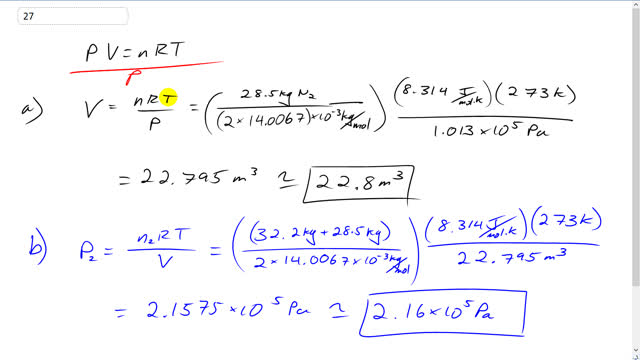 27
PV = nRT
P
a) V = nRT/P = (28.5 kg N₂ / (2 × 14.0067) × 10⁻³ kg/mol) (8.314 J/mol·k)(273k) / 1.013 × 10⁵ Pa
= 22.795 m³ ≃ 22.8 m³
b) P₂ = n₂RT/V = ((32.2 kg + 28.5 kg) / 2 × 14.0067 × 10⁻³ kg/mol) (8.314 J/mol·k)(273k) / 22.795 m³
= 2.1575 × 10⁵ Pa ≃ 2.16 × 10⁵ Pa